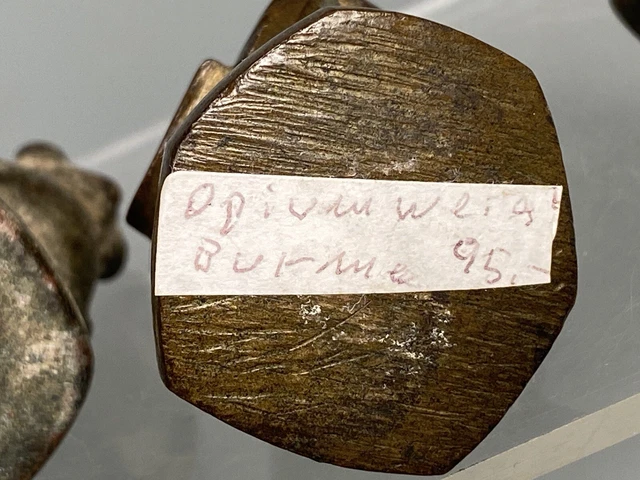 Opiumweig
Burma 95.-